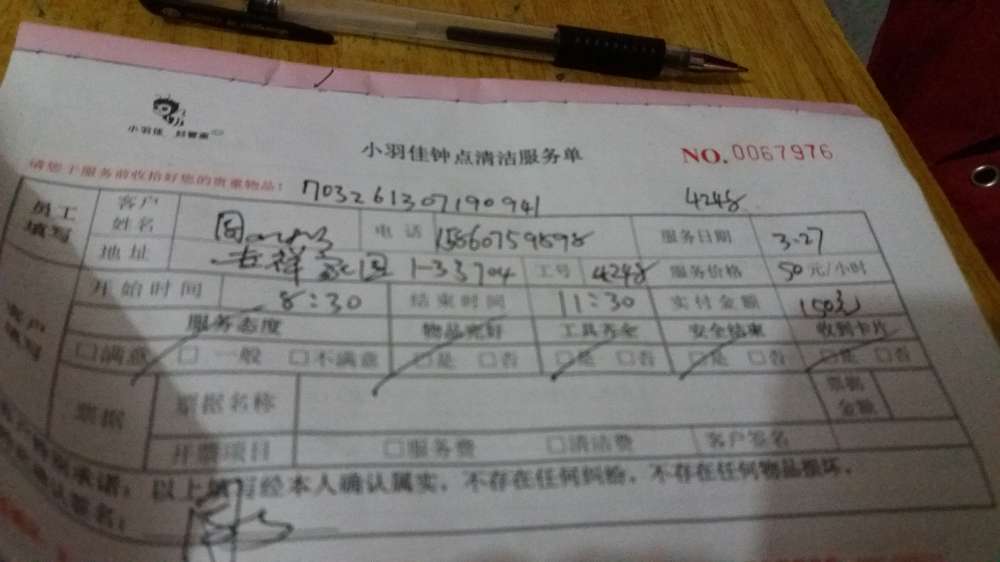 小羽佳 好管家
小羽佳钟点清洁服务单
NO. 0067976
请您于服务前收拾好您的贵重物品!
703261307190941 4248
员工填写 客户姓名 电话 服务日期 3.27
地址 吉祥家园 1-33704 工号 4248 服务价格 50元/小时
客户填写 开始时间 8:30 结束时间 11:30 实付金额 150元
服务态度 物品完好 工具齐全 安全结束 收到卡片
□满意 □一般 □不满意 □是 □否 □是 □否 □是 □否 □是 □否
票据 票据名称 票据金额
开票项目 □服务费 □清洁费 客户签名
承诺:以上填写经本人确认属实,不存在任何纠纷,不存在任何物品损坏。
签名: